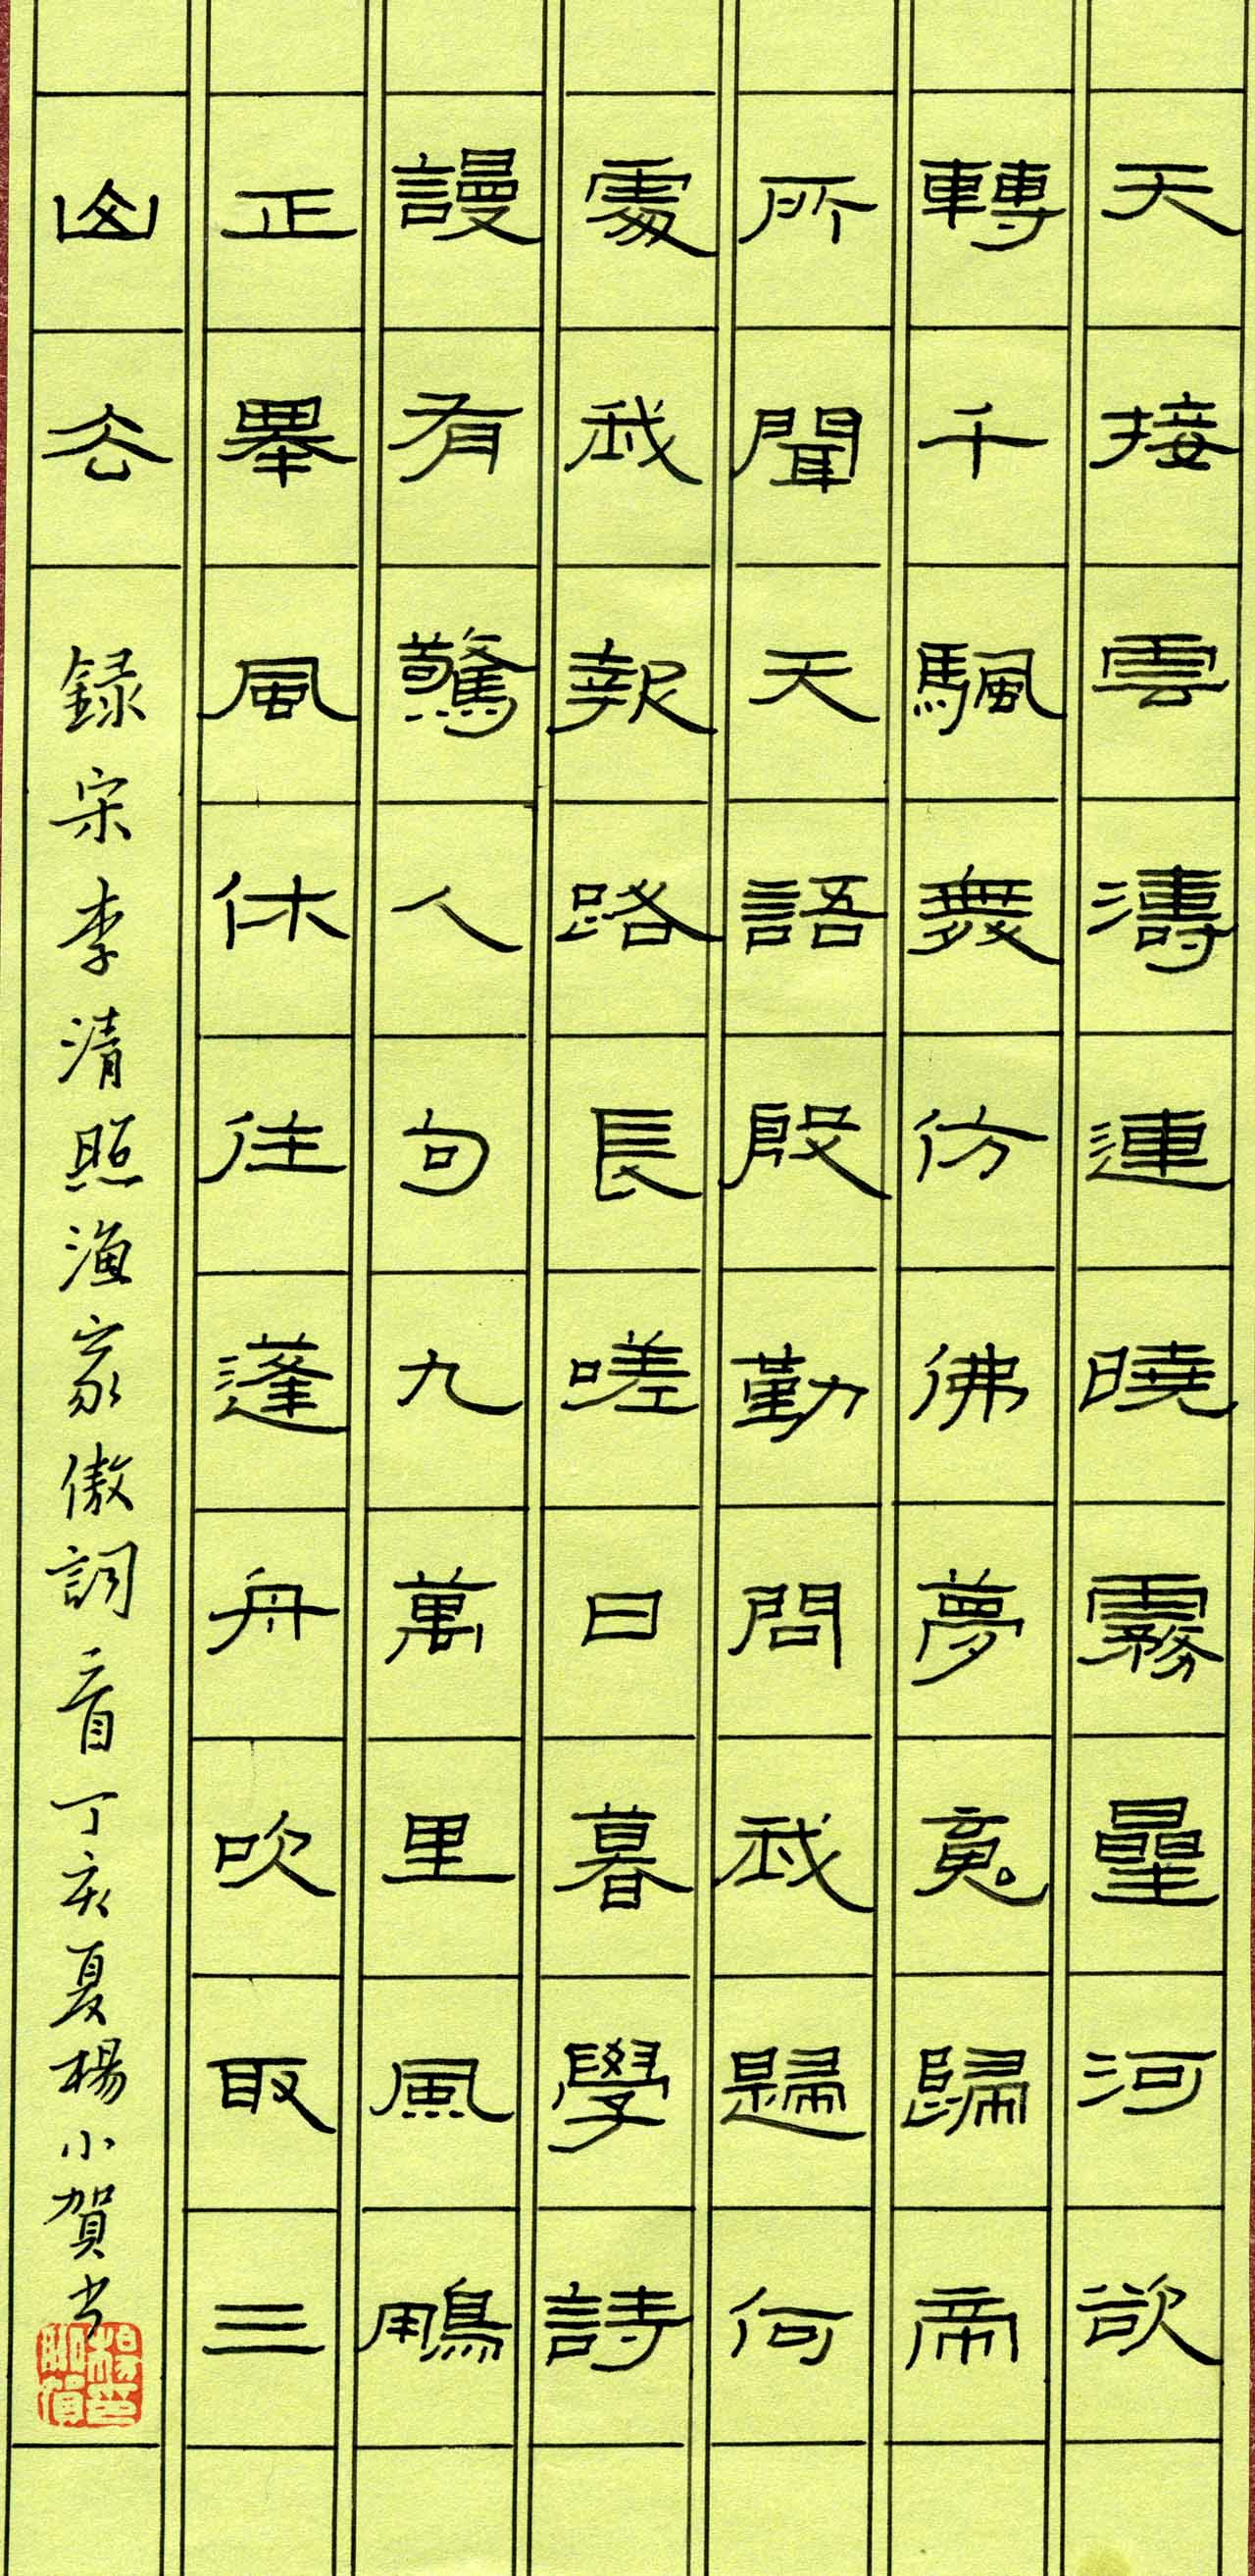 天接雲濤連曉霧曐河欲
轉千颿舞仿彿夢䰟歸帝
所聞天語殷勤問我歸何
處我報路長嗟日暮學詩
謾有驚人句九萬里風鵬
正舉風休住蓬舟吹取三
山去 録宋李清照漁家傲詞一首丁亥夏楊小賀书